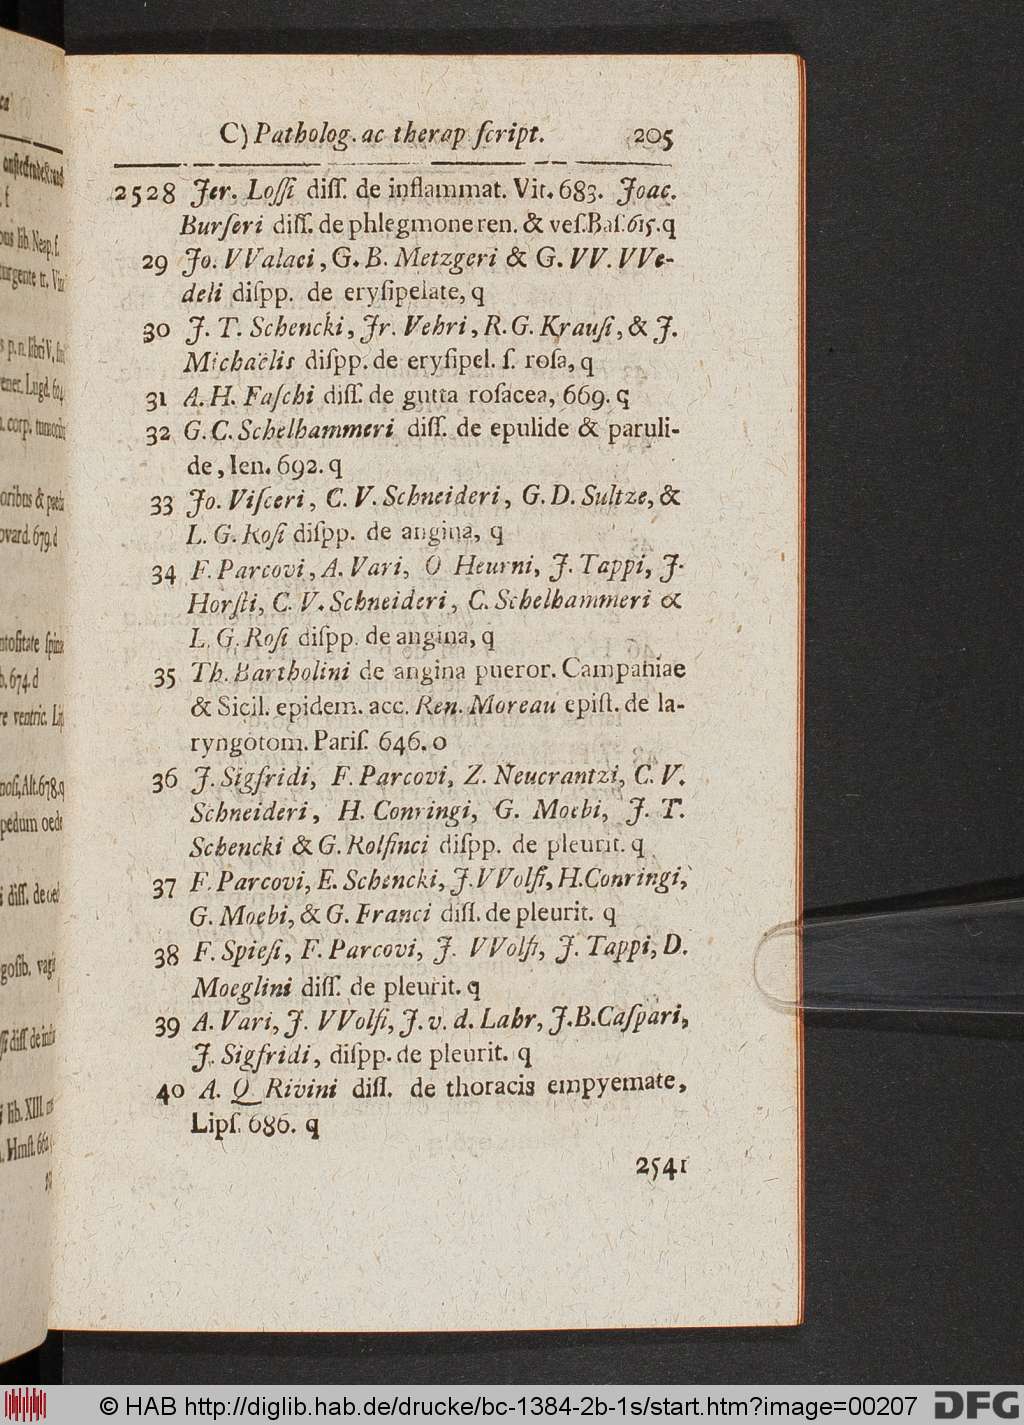 C) Patholog. ac therap. ſcript. 205
2528 Jer. Loſſi diſſ. de inflammat. Vit. 683. Joac.
Burſeri diſſ. de phlegmone ren. & veſ. Baſ. 615. q
29 Jo. VValaei, G. B. Metzgeri & G. VV. VVe-
deli diſpp. de eryſipelate, q
30 J. T. Schencki, Jr. Vehri, R. G. Krauſi, & J.
Michaëlis diſpp. de eryſipel. ſ. roſa, q
31 A. H. Faſchi diſſ. de gutta roſacea, 669. q
32 G. C. Schelhammeri diſſ. de epulide & paruli-
de, Ien. 692. q
33 Jo. Viſceri, C. V. Schneideri, G. D. Sultze, &
L. G. Roſi diſpp. de angina, q
34 F. Parcovi, A. Vari, O Heurni, J. Tappi, J.
Horſti, C. V. Schneideri, C. Schelhammeri &
L. G. Roſi diſpp. de angina, q
35 Th. Bartholini de angina pueror. Campaniae
& Sicil. epidem. acc. Ren. Moreau epiſt. de la-
ryngotom. Pariſ. 646. o
36 J. Sigfridi, F. Parcovi, Z. Neucrantzi, C. V.
Schneideri, H. Conringi, G. Moebi, J. T.
Schencki & G. Rolfinci diſpp. de pleurit. q
37 F. Parcovi, E. Schencki, J. VVolfi, H. Conringi,
G. Moebi, & G. Franci diſſ. de pleurit. q
38 F. Spieſi, F. Parcovi, J. VVolfi, J. Tappi, D.
Moeglini diſſ. de pleurit. q
39 A. Vari, J. VVolfi, J. v. d. Lahr, J. B. Caſpari,
J. Sigfridi, diſpp. de pleurit. q
40 A. Q Rivini diſſ. de thoracis empyemate,
Lipſ. 686. q
2541
© HAB http://diglib.hab.de/drucke/bc-1384-2b-1s/start.htm?image=00207 DFG